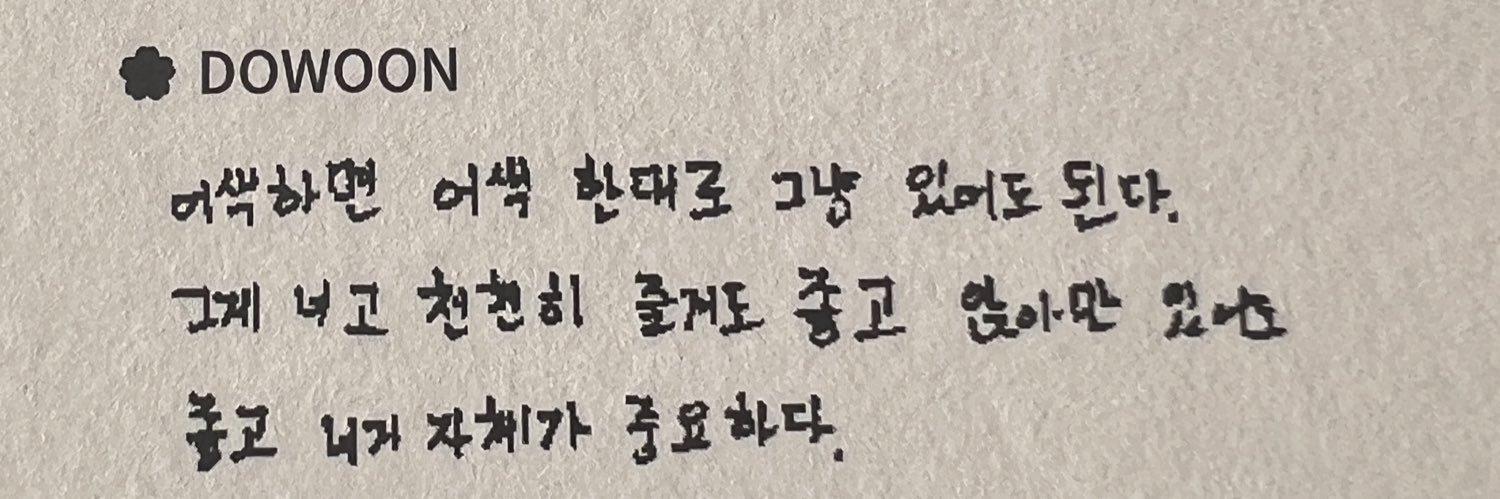 DOWOON
어색하면 어색 한대로 그냥 있어도 된다.
그게 너고 천천히 즐겨도 좋고 앉아만 있어도
좋고 너가 자체가 중요하다.